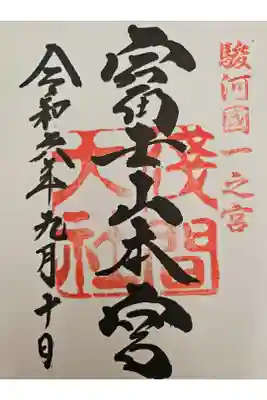 駿河國一之宮
富士山本宮
淺間大社
令和六年九月十日